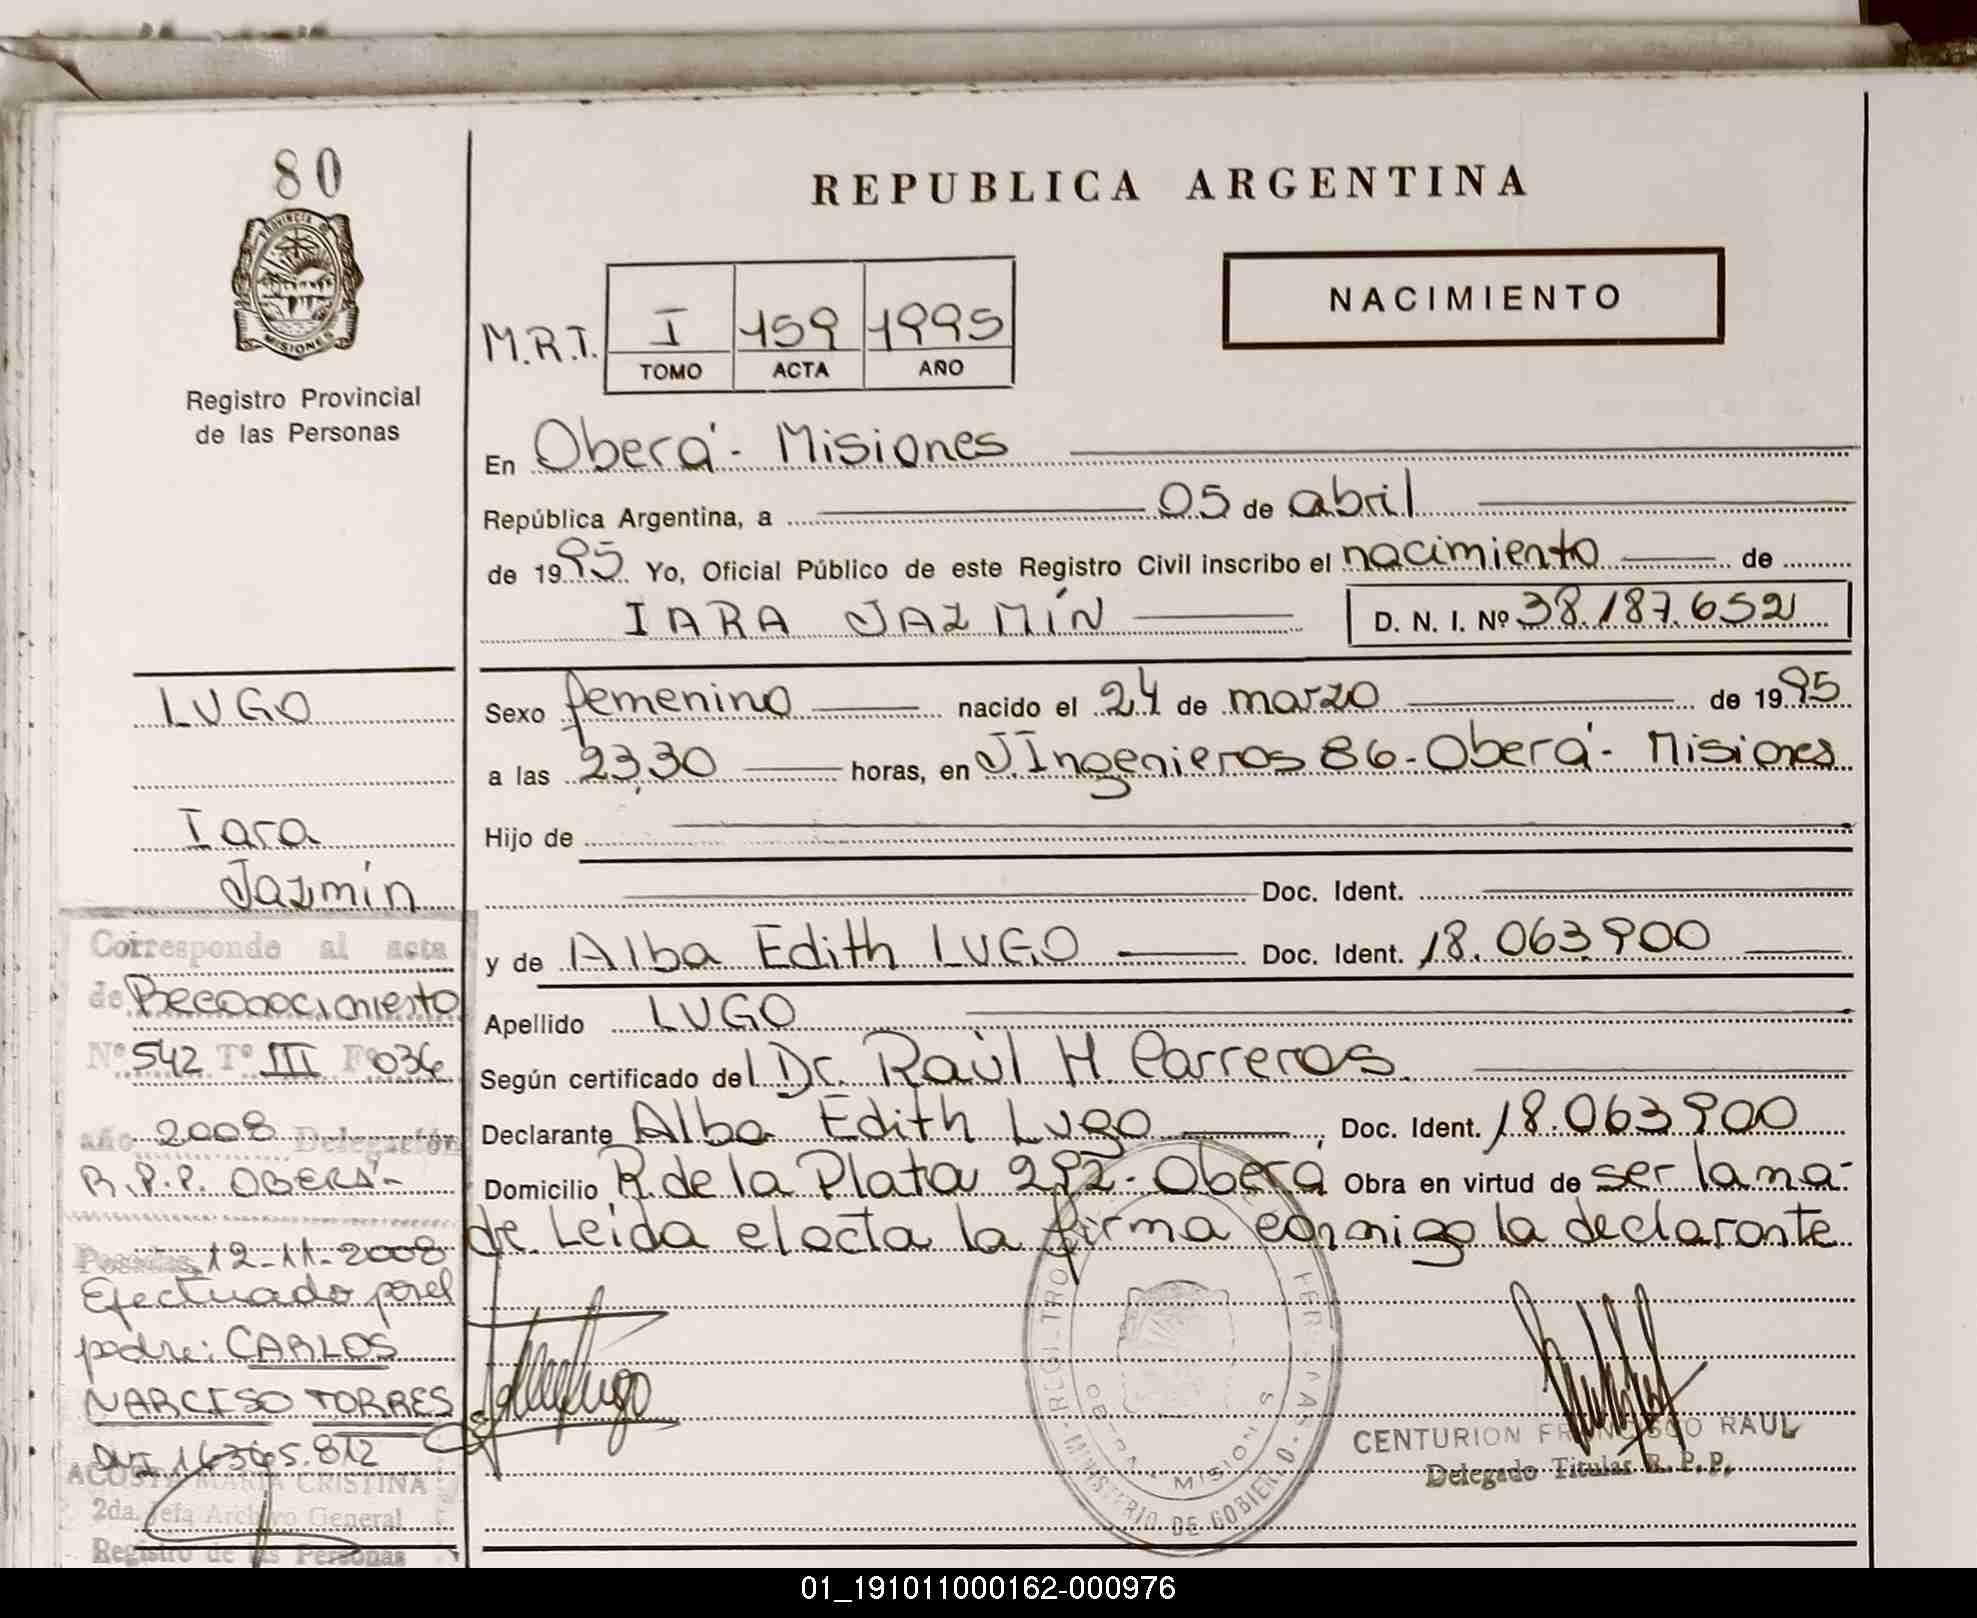 80
PROVINCIA DE
MISIONES
Registro Provincial
de las Personas
REPUBLICA ARGENTINA
NACIMIENTO
M.R.T. I 159 1995
TOMO ACTA AÑO
En Oberá - Misiones
República Argentina, a 05 de abril
de 1995 Yo, Oficial Público de este Registro Civil inscribo el nacimiento de
IARA JAZMÍN D. N. I. Nº 38.187.652
Sexo femenino nacido el 24 de marzo de 1995
a las 23,30 horas, en J.Ingenieros 86-Oberá- Misiones
Hijo de
Doc. Ident.
y de Alba Edith LUGO Doc. Ident. 18.063.900
Apellido LUGO
Según certificado del Dr. Raúl H. Carreras
Declarante Alba Edith Lugo, Doc. Ident. 18.063.900
Domicilio R. de la Plata 292- Oberá Obra en virtud de ser la ma-
de Leida el acta la firma conmigo la declarante
LUGO
Iara
Jazmín
Corresponde al acta
de Reconocimiento
Nº 542 Tº III Fº 036
año 2008 Delegación
R.P.P. OBERÁ-
Posadas, 12-11-2008
Efectuado por el
padre: CARLOS
NARCISO TORRES
DNI 16365.812
ACOSTA MARIA CRISTINA
2da. Jefa Archivo General
Registro de las Personas
MINISTERIO DE GOBIERNO
OBERA - MISIONES
CENTURION FRANCISCO RAUL
Delegado Titular R. P. P.
01_191011000162-000976